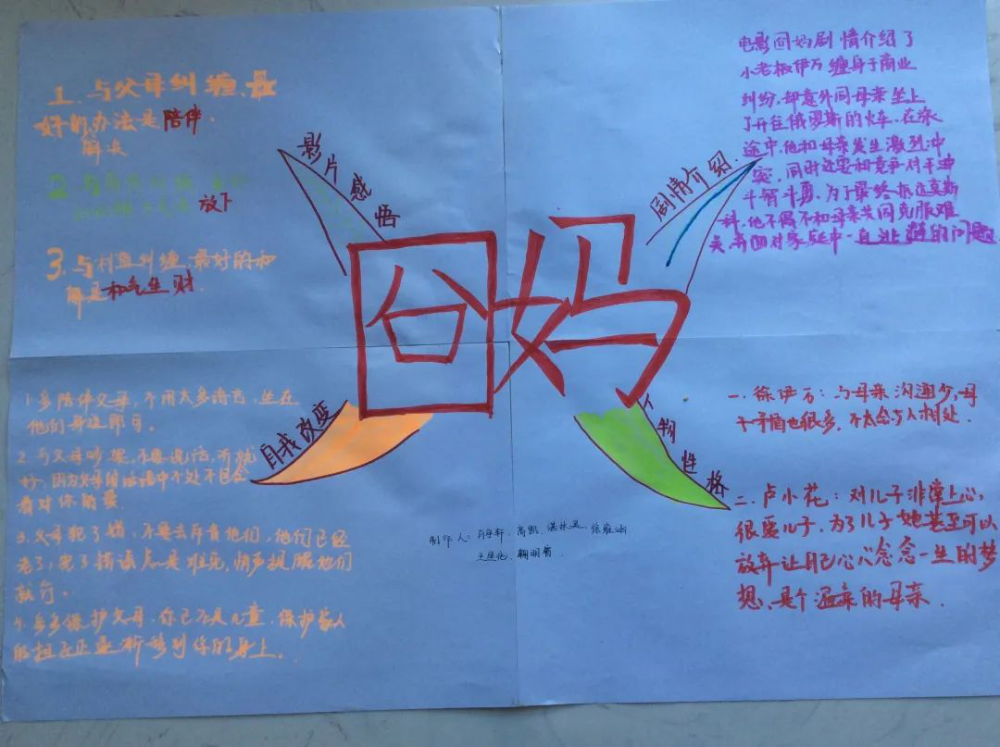 1.与父母纠缠,最
好的办法是陪伴.
解决
2.
放下
3.与利益纠缠,最好的和
解是和气生财.
影片感悟
剧情介绍.
电影囧妈剧情介绍了
小老板伊万缠身于商业
纠纷,却意外同母亲坐上
了开往俄罗斯的火车.在旅
途中,他和母亲发生激烈冲
突,同时还要和竞争对手
斗智斗勇.为了最终抵达莫斯
科,他不得不和母亲共同克服难
关,并面对家庭中一直逃避的问题
囧妈
自我改变
人物性格
1.多陪伴父母,不用太多语言,坐在
他们身边即可.
2.与父母吵架,不要说话,听就
好,因为父母的话语中无处不包含
着对你的爱
3.父母犯了错,不要去斥责他们,他们已经
老了,犯了错误总是难免,悄声提醒他们
就行.
4.多多保护父母,你已不是儿童,保护家人
的担子正逐渐移到你的身上.
一.徐伊万:与母亲沟通少,母
子矛盾也很多,不太会与人相处.
二.卢小花:对儿子非常上心,
很爱儿子.为了儿子她甚至可以
放弃让自己心心念念一生的梦
想,是个温柔的母亲.
制作人: